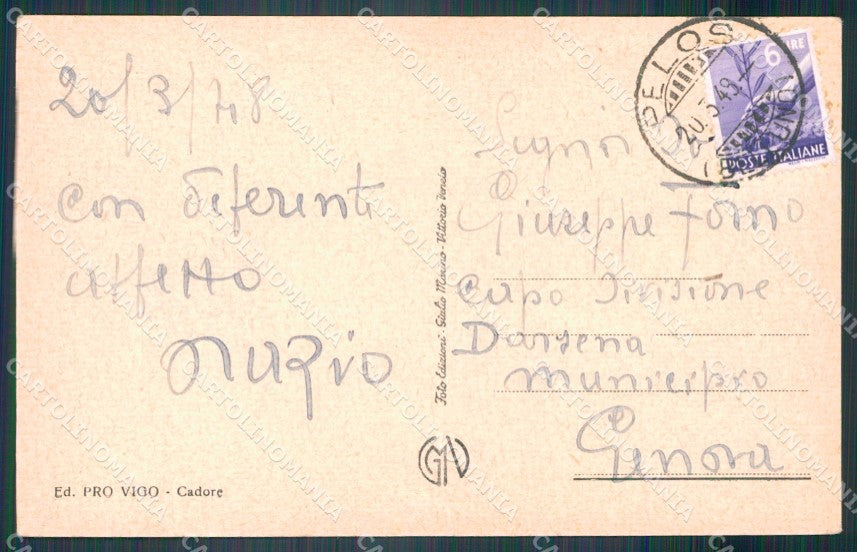 20/3/48
con deferenti
affetto
Nuzio
Ed. PRO VIGO - Cadore
Foto Edizioni - Giulio Marino - Vittorio Veneto
GM
PELOS
20.3.48
6 LIRE
POSTE ITALIANE
Signor
Giuseppe Forno
capo Divisione
Darsena
Municipio
Genova
CARTOLINOMANIA